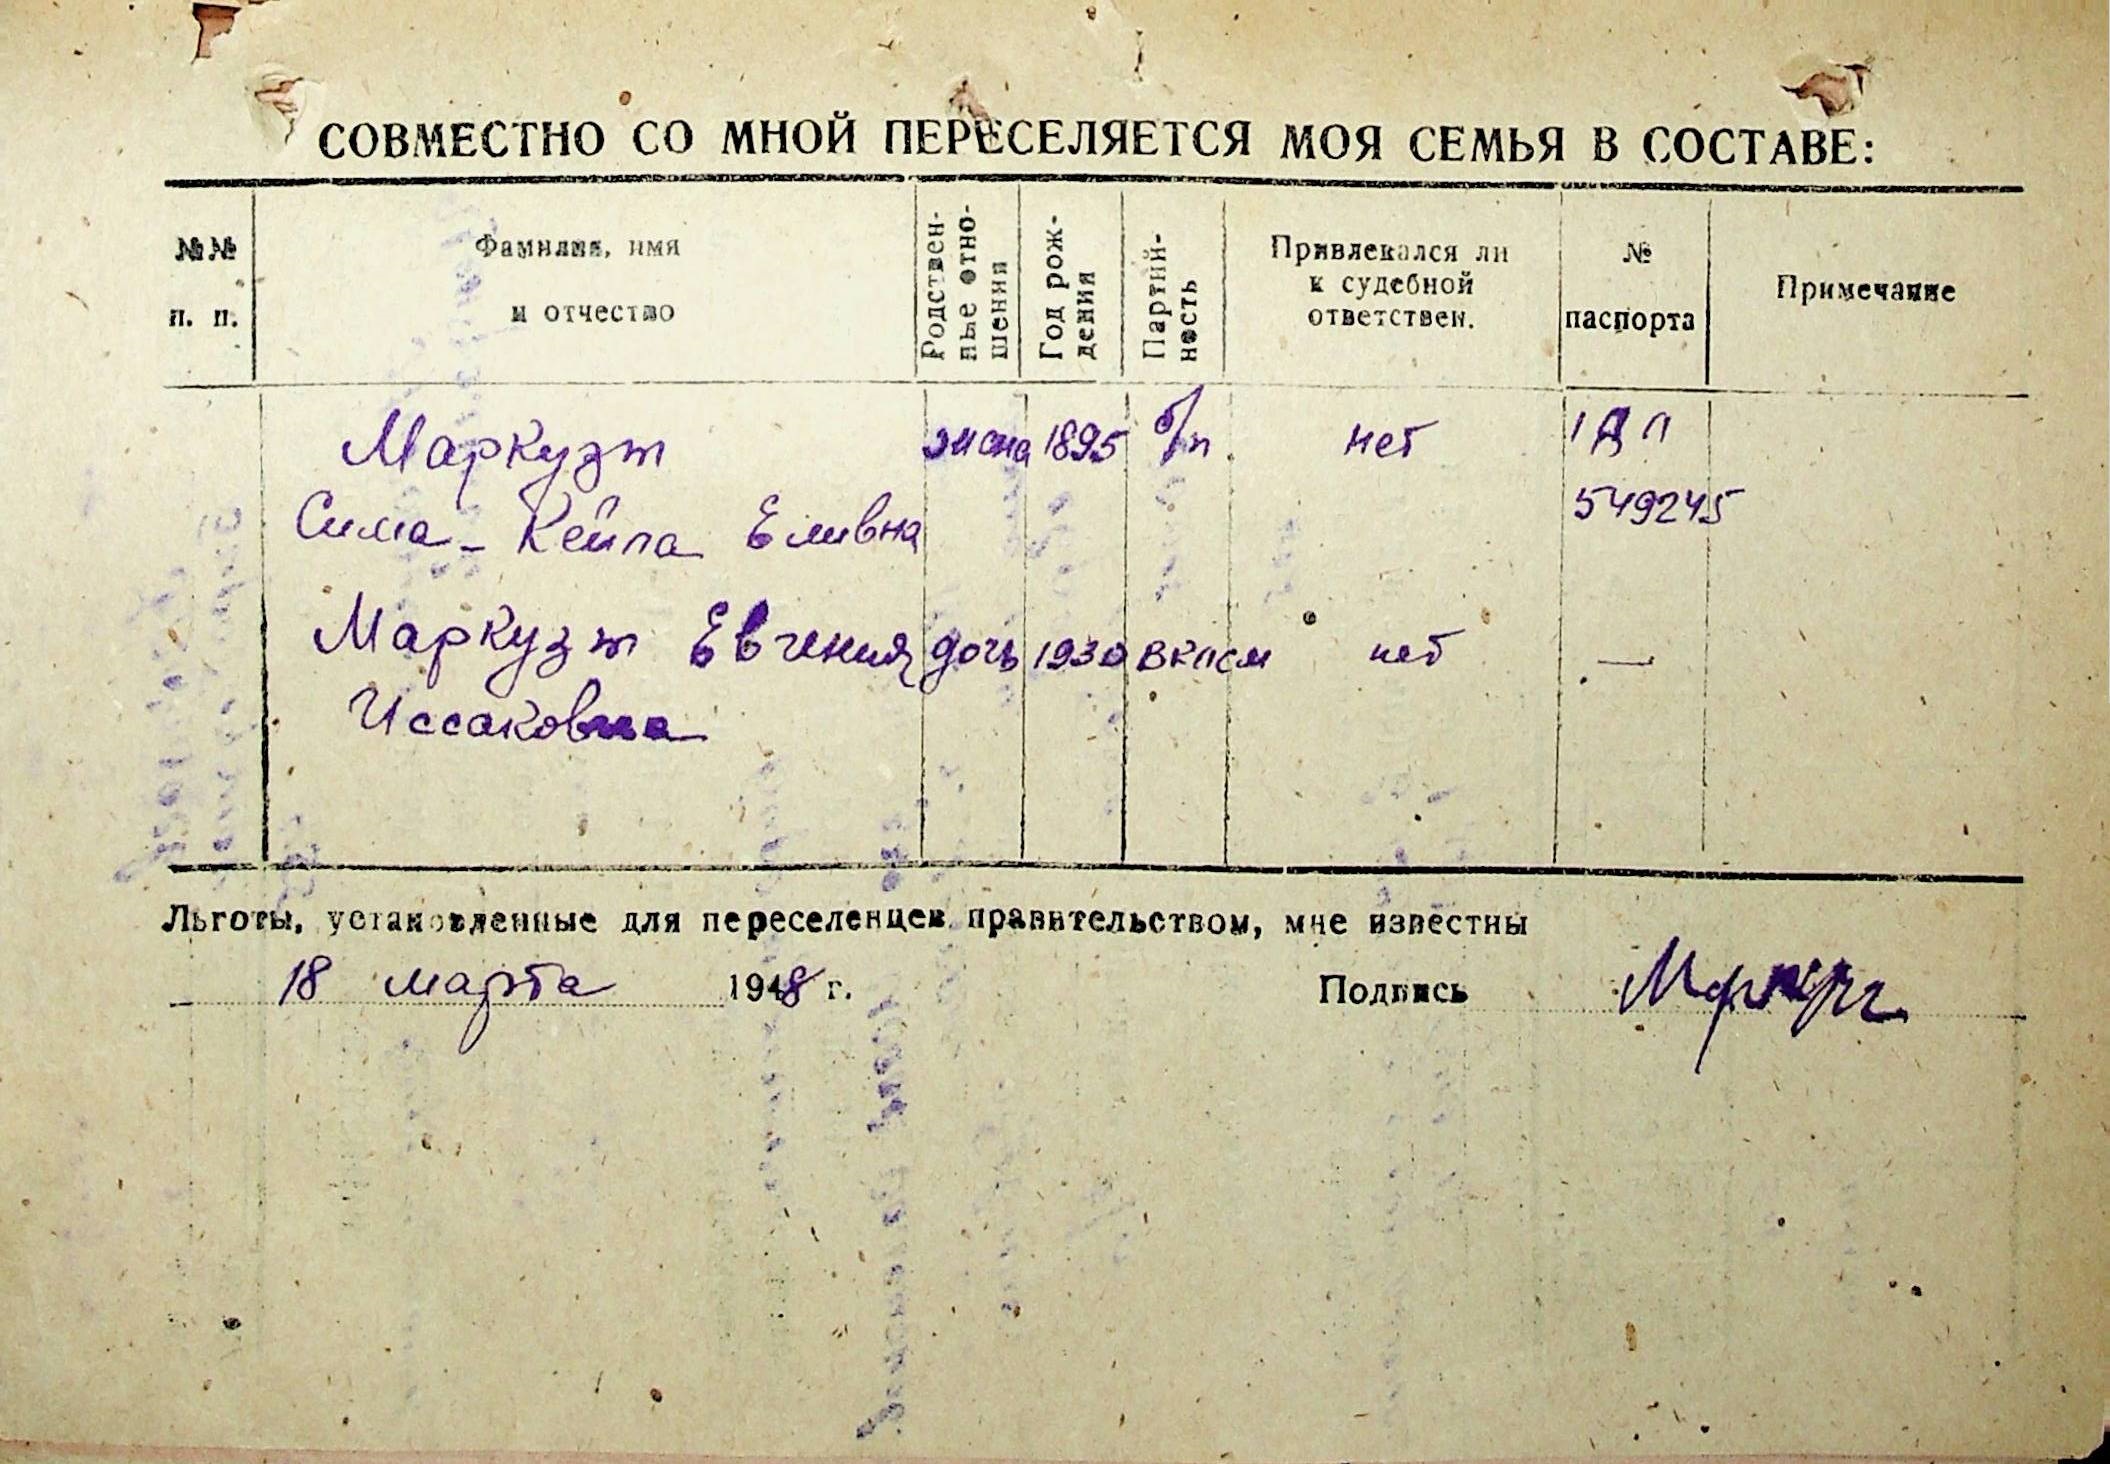 СОВМЕСТНО СО МНОЙ ПЕРЕСЕЛЯЕТСЯ МОЯ СЕМЬЯ В СОСТАВЕ:
№№ п. п.
Фамилия, имя и отчество
Родствен-
ные отно-
шения
Год рож-
дения
Партий-
ность
Привлекался ли
к судебной
ответствен.
№
паспорта
Примечание
Маркузт жена 1895 б/п нет 1 ДП
Сима - Кейла Еливна 549245
Маркузт Евгения дочь 1930 ВКЛСМ нет —
Иссаковна
Льготы, установленные для переселенцев правительством, мне известны
18 марта 1948 г. Подпись